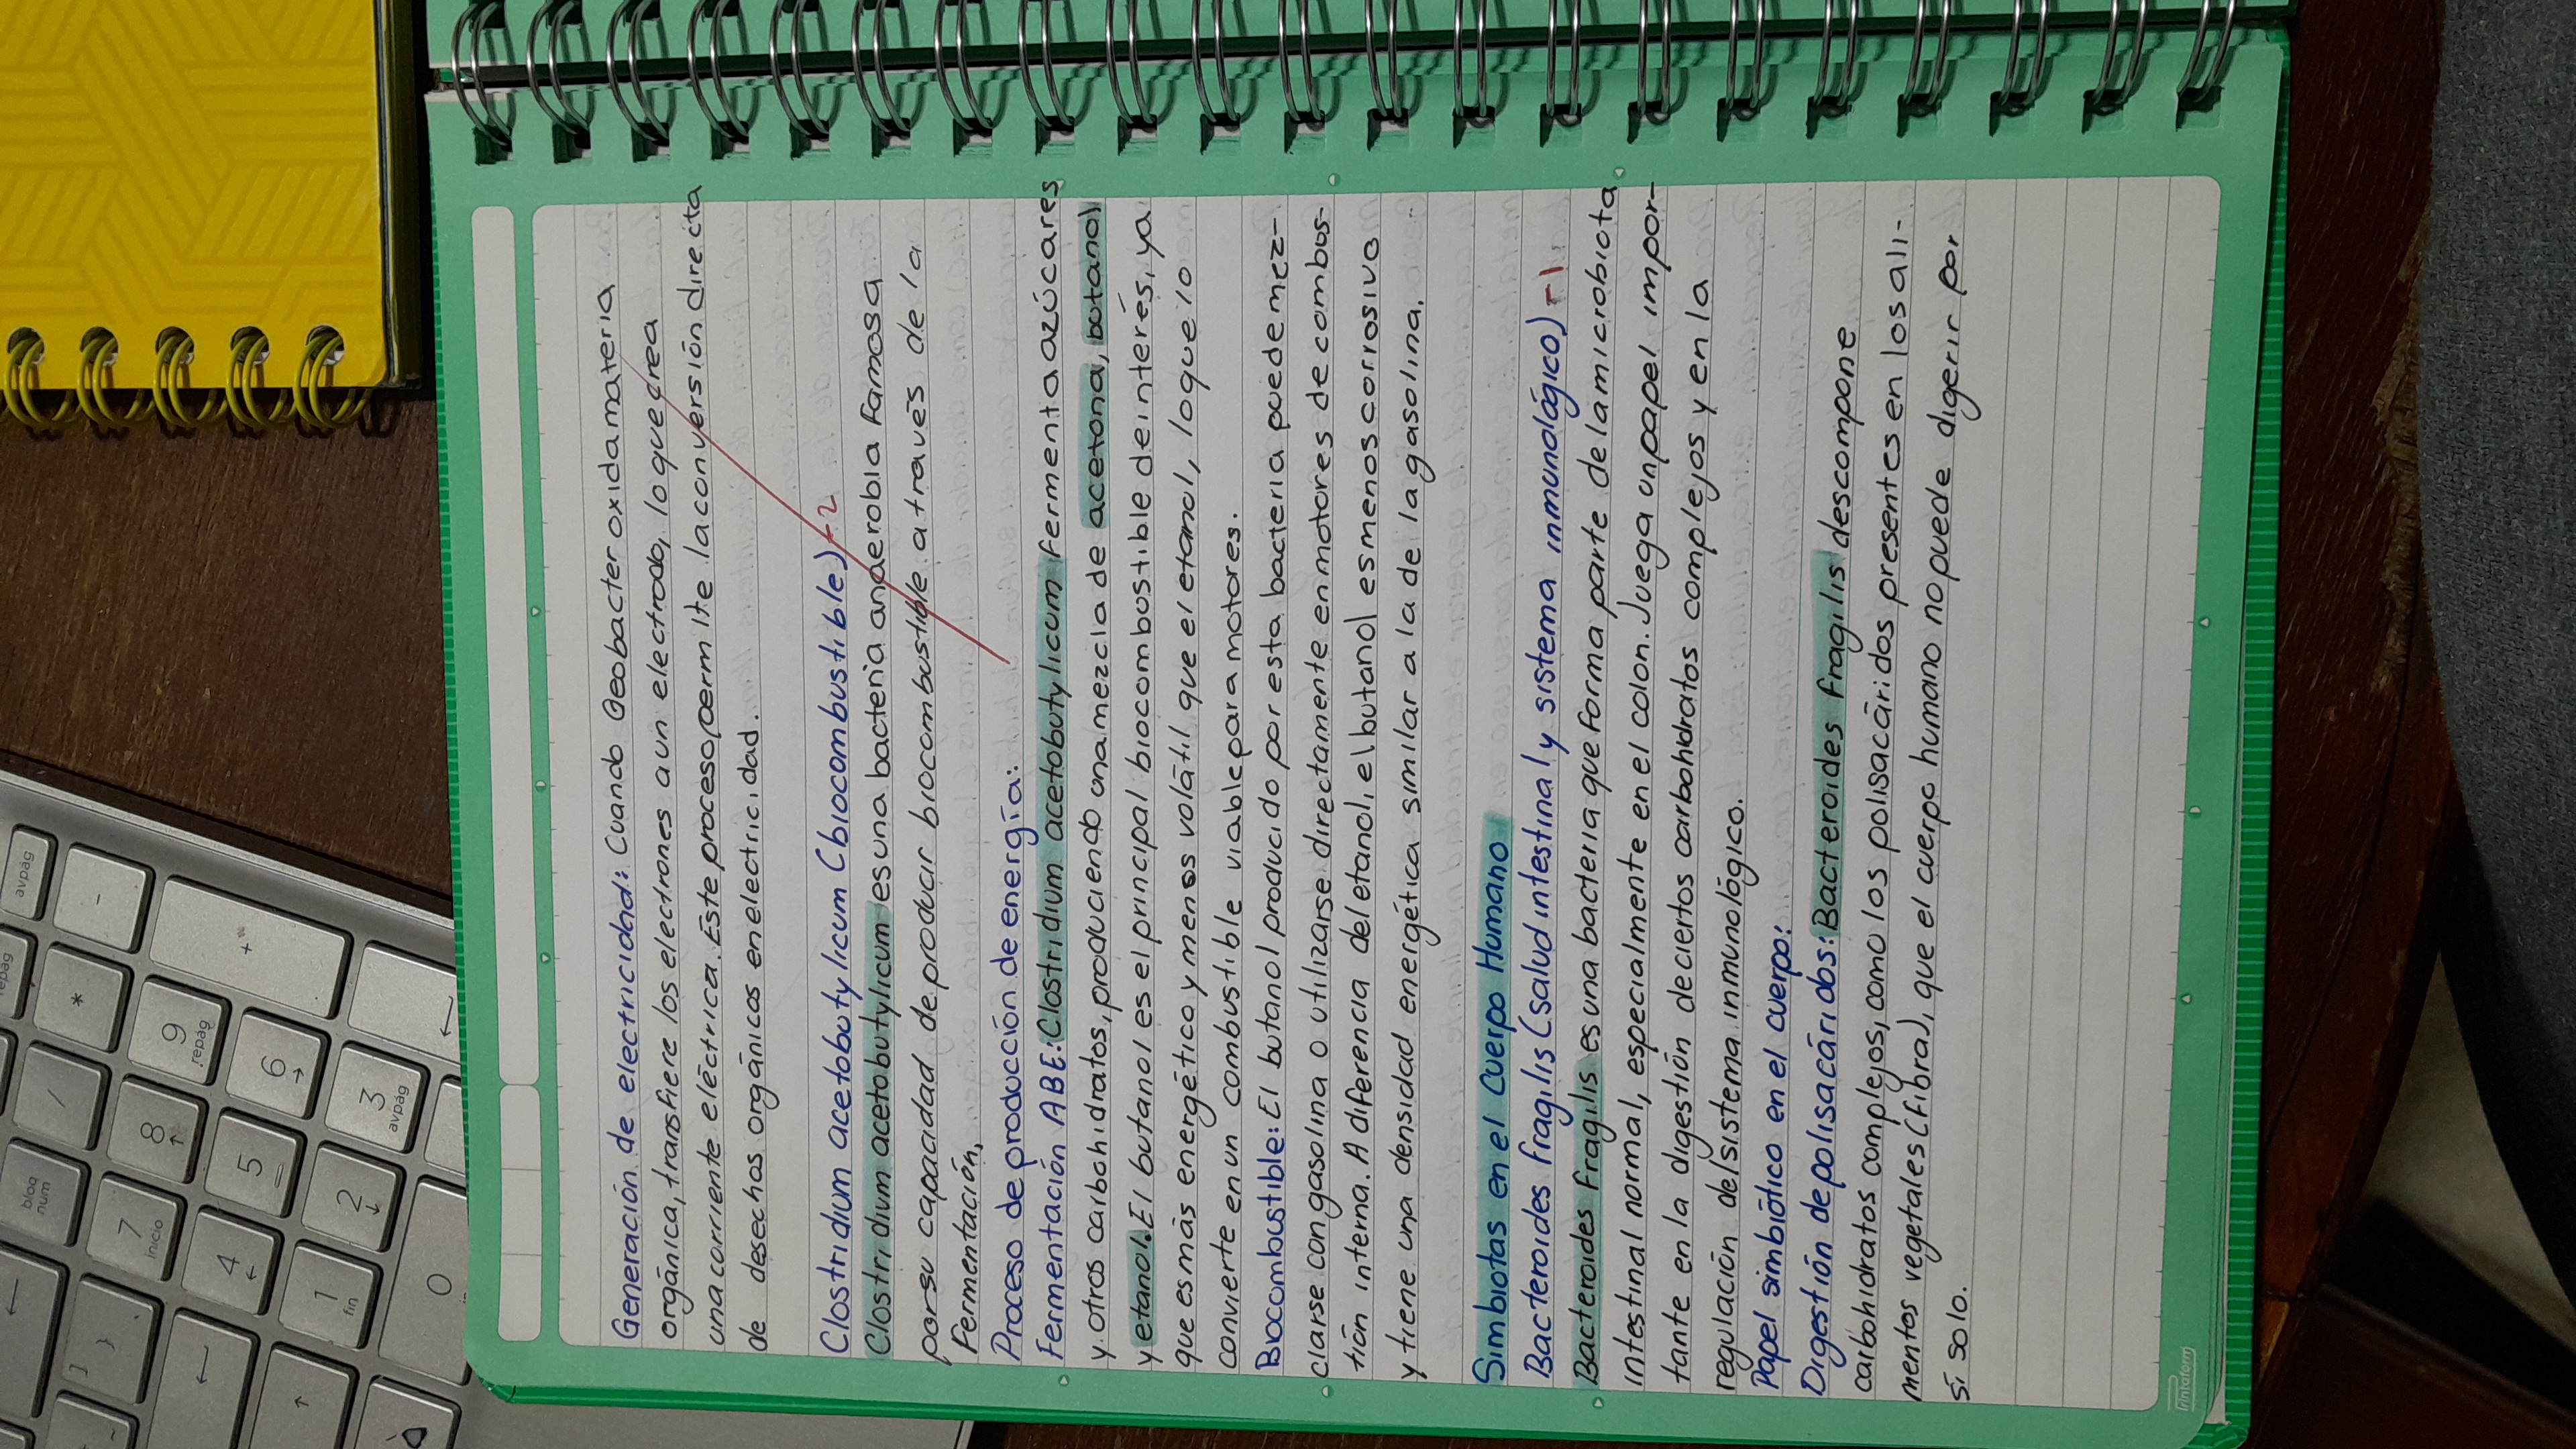 Generación de electricidad: Cuando Geobacter oxida materia
orgánica, transfiere los electrones a un electrodo, lo que crea
una corriente eléctrica. Este proceso permite la conversión directa
de desechos orgánicos en electricidad.
Clostridium acetobutylicum (biocombustible) -2
Clostridium acetobutylicum es una bacteria anaerobia famosa
por su capacidad de producir biocombustible a través de la
fermentación.
Proceso de producción de energía:
Fermentación ABE: Clostridium acetobutylicum fermenta azúcares
y otros carbohidratos, produciendo una mezcla de acetona, butanol
y etanol. El butanol es el principal biocombustible de interés, ya
que es más energético y menos volátil que el etanol, lo que lo
convierte en un combustible viable para motores.
Biocombustible: El butanol producido por esta bacteria puede mez-
clarse con gasolina o utilizarse directamente en motores de combus-
tión interna. A diferencia del etanol, el butanol es menos corrosivo
y tiene una densidad energética similar a la de la gasolina.
Simbiotas en el Cuerpo Humano
Bacteroides fragilis (salud intestinal y sistema inmunológico) -1
Bacteroides fragilis es una bacteria que forma parte de la microbiota
intestinal normal, especialmente en el colon. Juega un papel impor-
tante en la digestión de ciertos carbohidratos complejos y en la
regulación del sistema inmunológico.
Papel simbiótico en el cuerpo:
Digestión de polisacáridos: Bacteroides fragilis descompone
carbohidratos complejos, como los polisacáridos presentes en los ali-
mentos vegetales (fibra), que el cuerpo humano no puede digerir por
sí solo.
Printaform
avpág
-
+
*
/
9
repág
8
7
inicio
bloq
num
6
5
4
3
avpág
2
1
fin
0